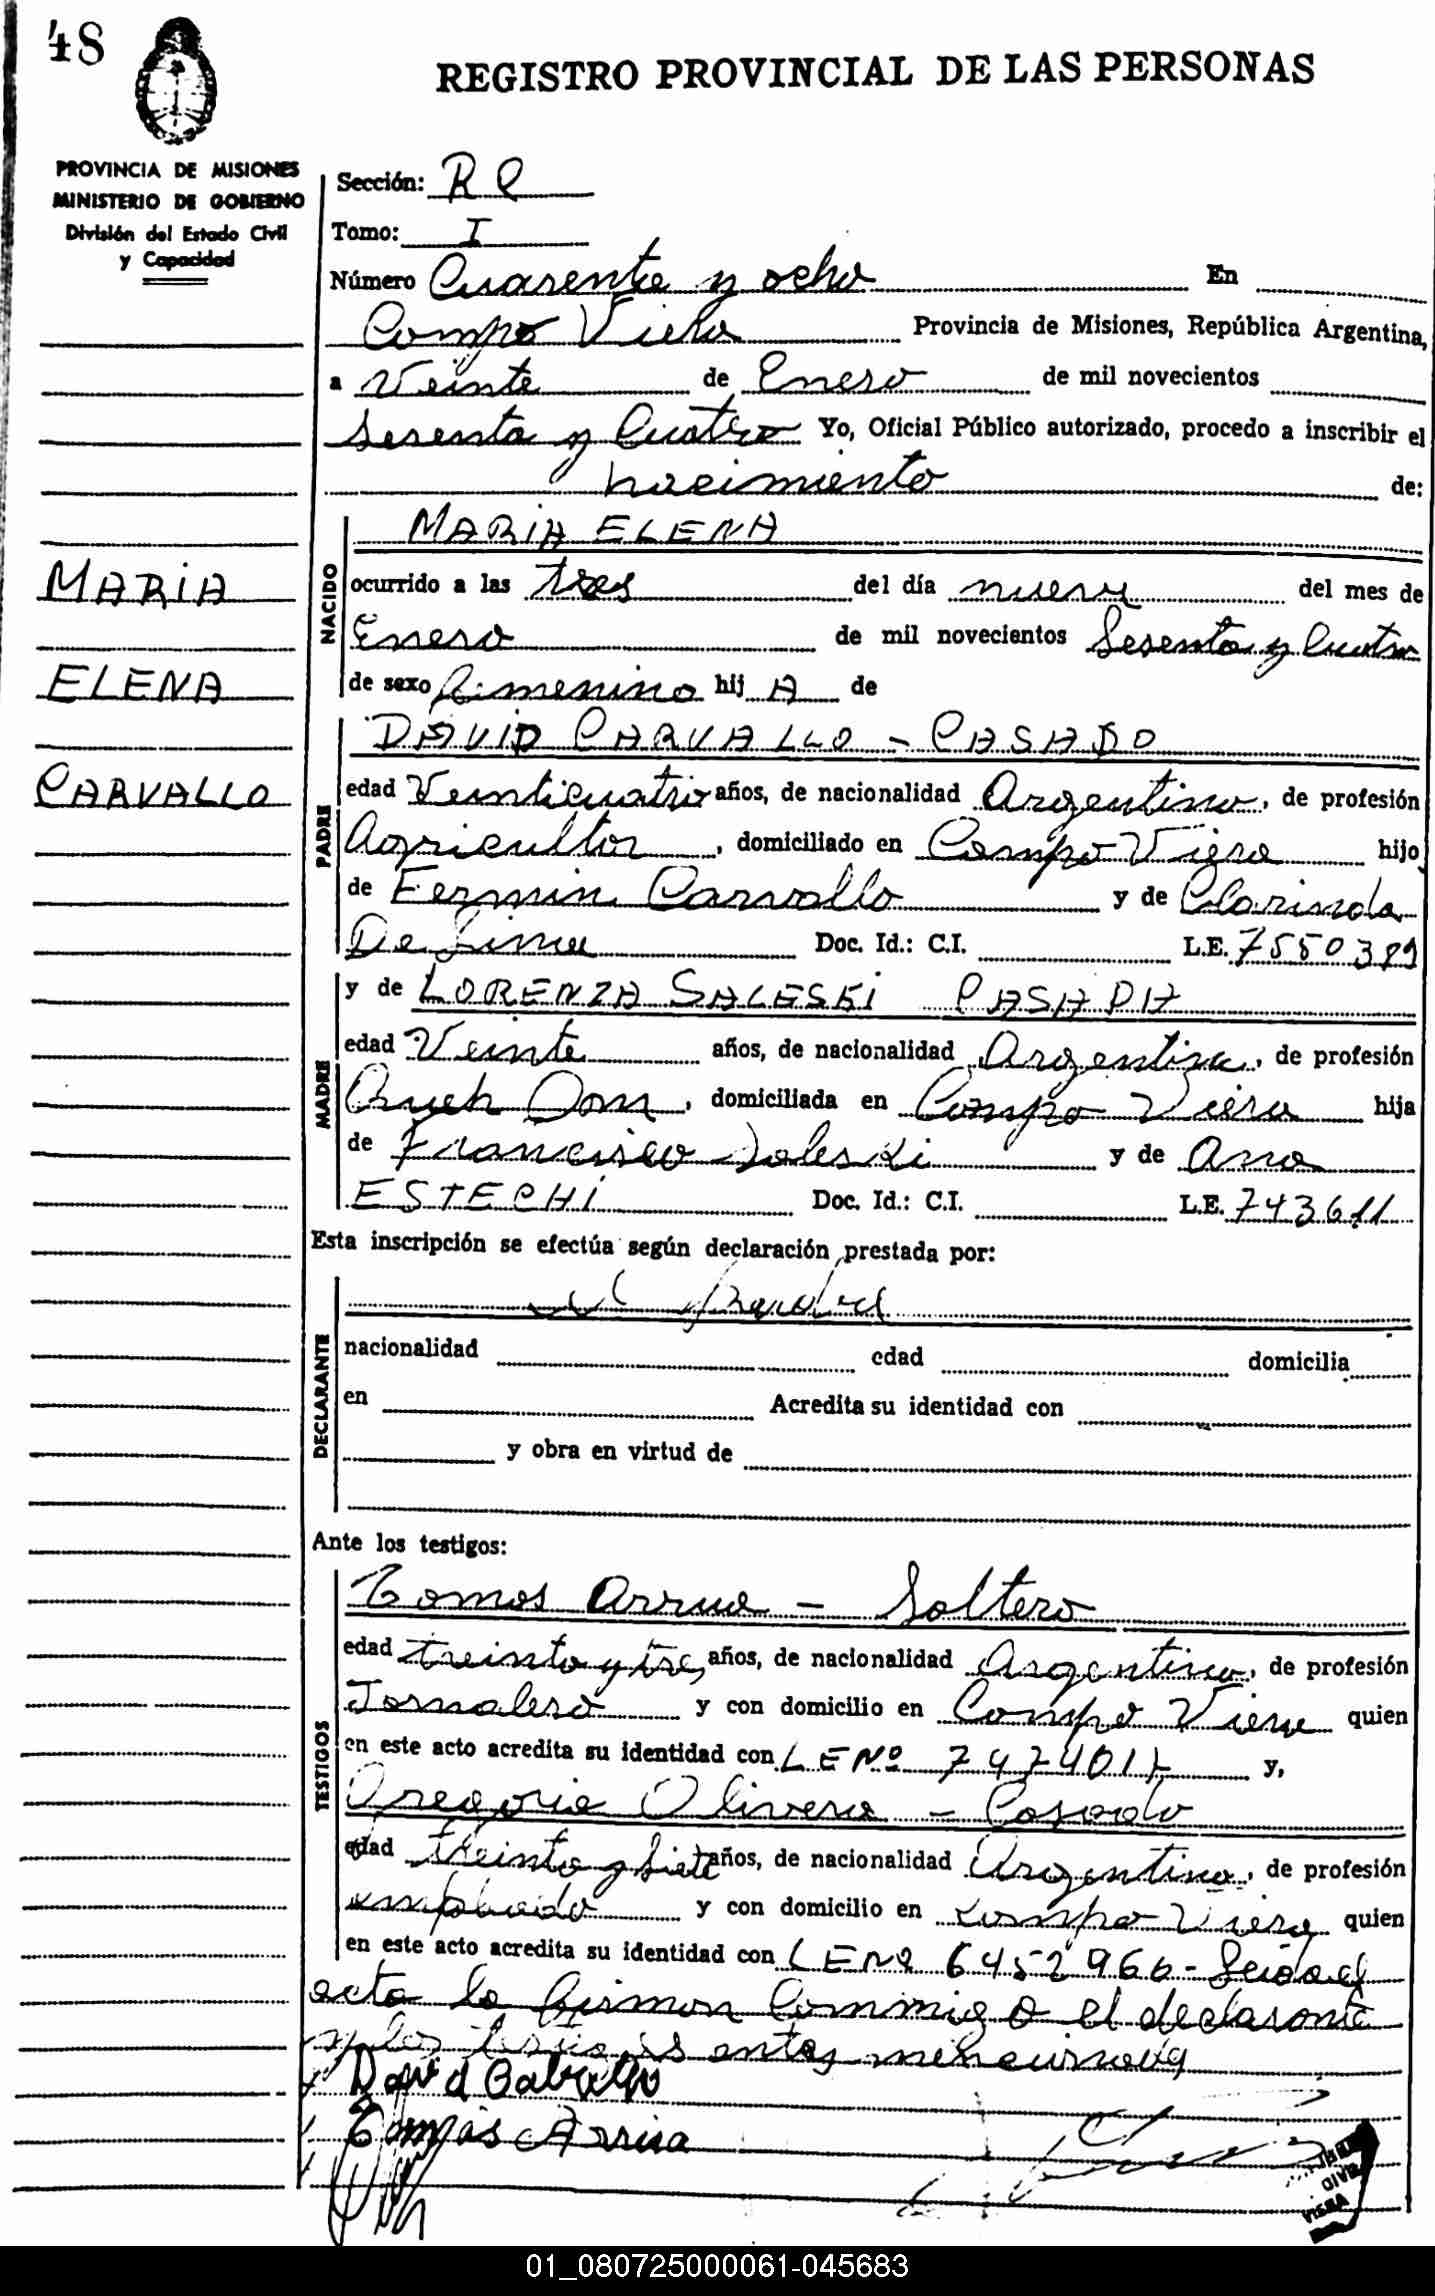 48
REGISTRO PROVINCIAL DE LAS PERSONAS
PROVINCIA DE MISIONES
MINISTERIO DE GOBIERNO
División del Estado Civil
y Capacidad
Sección: R C
Tomo: I
Número Cuarenta y ocho En
Campo Viera Provincia de Misiones, República Argentina,
a Veinte de Enero de mil novecientos
Sesenta y Cuatro Yo, Oficial Público autorizado, procedo a inscribir el
nacimiento de:
MARIA
ELENA
CARVALLO
NACIDO
MARIA ELENA
ocurrido a las tres del día nueve del mes de
Enero de mil novecientos Sesenta y Cuatro
de sexo Femenino hij A de
PADRE
DAVID CARVALLO - CASADO
edad Veinticuatro años, de nacionalidad Argentino, de profesión
Agricultor, domiciliado en Campo Viera hijo
de Fermin Carvallo y de Clarinda
De Lima Doc. Id.: C.I. L.E. 7550389
MADRE
y de LORENZA SALESKI CASADA
edad Veinte años, de nacionalidad Argentina, de profesión
Dom, domiciliada en Campo Viera hija
de Francisco Saleski y de Ana
ESTECHI Doc. Id.: C.I. L.E. 743611
Esta inscripción se efectúa según declaración prestada por:
DECLARANTE
el padre
nacionalidad edad domicilia
en Acredita su identidad con
y obra en virtud de
Ante los testigos:
TESTIGOS
Tomas Arrua - Soltero
edad treinta y tres años, de nacionalidad Argentino, de profesión
Jornalero y con domicilio en Campo Viera quien
en este acto acredita su identidad con LE Nº y,
Gregorio Olivera - Casado
edad treinta y siete años, de nacionalidad Argentino, de profesión
empleado y con domicilio en Campo Viera quien
en este acto acredita su identidad con LE Nº 6452966 - Leida el
acta la firman Conmigo el declarante
y los testigos antes mencionados
David
Tomas Arrua
01_080725000061-045683